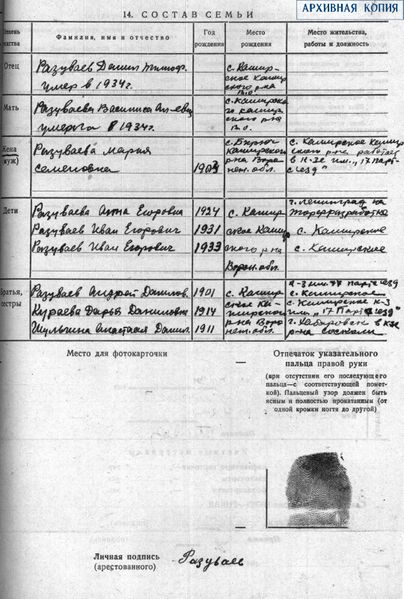 АРХИВНАЯ КОПИЯ
14. СОСТАВ СЕМЬИ
Степень родства
Фамилия, имя и отчество
Год рождения
Место рождения
Место жительства, работы и должность
Отец
Разуваев Данил Тимоф.
умер в 1934г.
с. Кашир-
ское Кашир
ского р-на
Мать
Разуваева Василиса
умерла в 1934г.
с. Каширское
каширского
р-на
Жена
муж)
Разуваева Мария
Семеновна
Каширского
р-на Воро
неж. обл.
с. Каширское Кашир
ского р-на работает
в к-зе им. "17 Парт
съезд"
Дети
Разуваева Анна Егоровна
1924
с. Кашир
г. Ленинград на
торфразработке
Разуваев Иван Егорович
1931
ское Кашир
с. Каширское
Разуваев Иван Егорович
1933
ского р-на
с. Каширское
Ворон. обл.
Братья,
сестры
Разуваев Андрей Данилов.
1901
с. Кашир
с. Каширское
Кураева Дарья Даниловна
1914
ское Ка-
ширского
с. Каширское к-з
им. "17 Парт съезд"
Шульгина Анастасия Данил.
1911
р-на Воро
неж. обл.
г. Хабаровск
Место для фотокарточки
Отпечаток указательного
пальца правой руки
(при отсутствии его последующего
пальца—с соответствующей помет-
кой). Пальцевый узор должен быть
ясным и полностью прокатанным (от
одной кромки ногтя до другой)
Личная подпись
(арестованного)
Разуваев